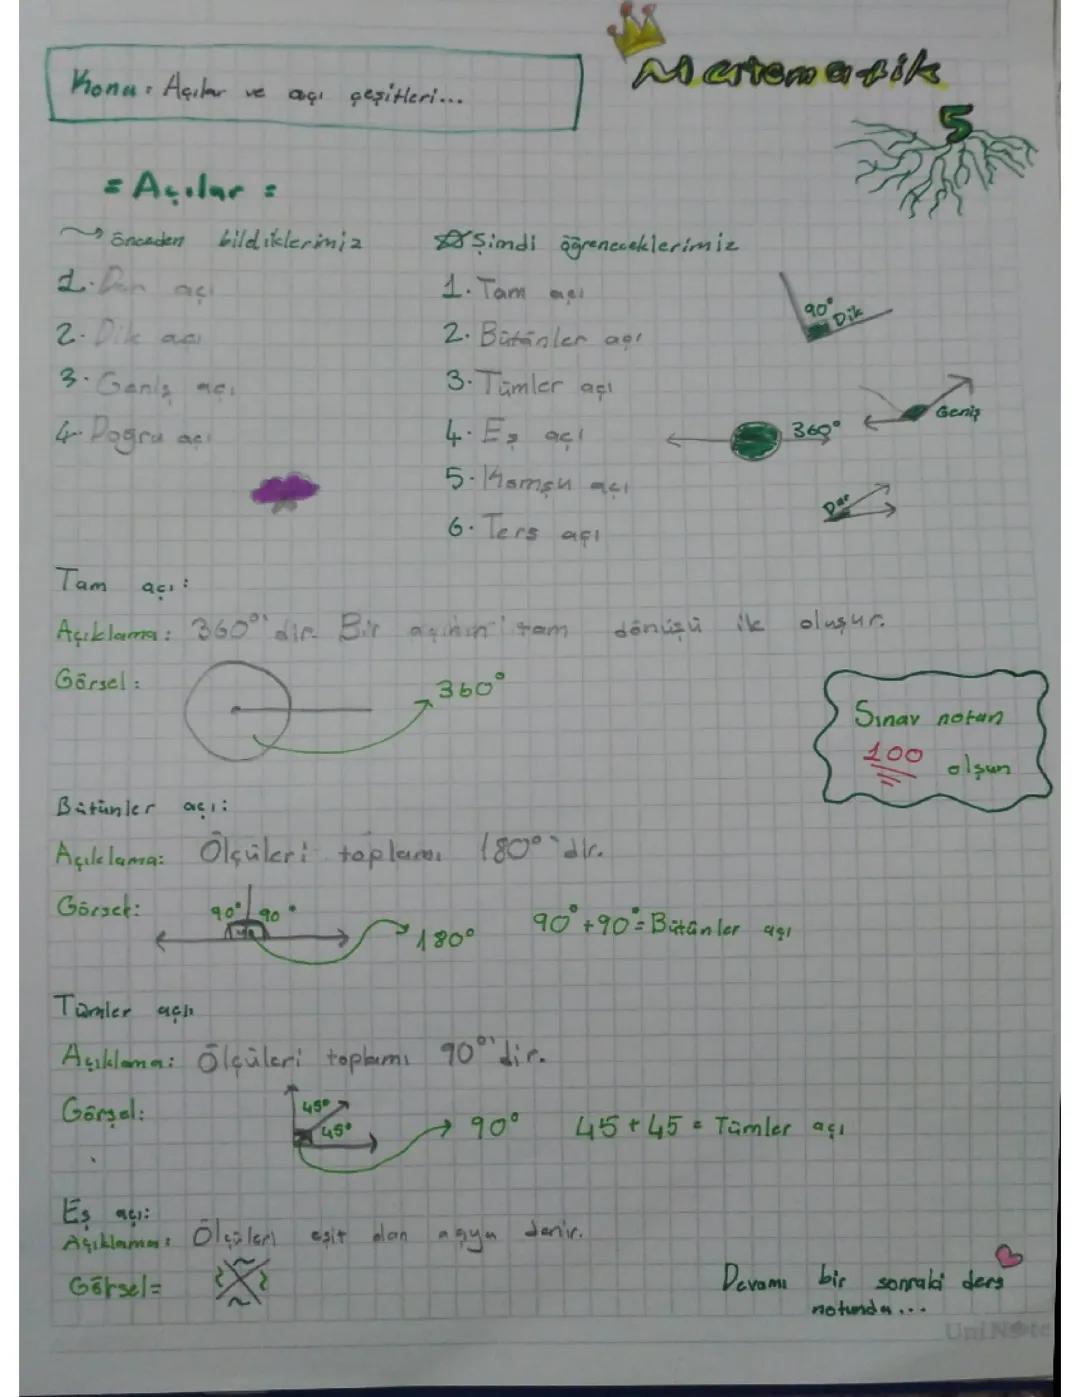 Matematik
5
Konu: Açılar ve açı çeşitleri...
= Açılar =
önceden bildiklerimiz
1. Dar açı
2. Dik açı
3. Geniş açı
4. Doğru açı
Şimdi öğreneceklerimiz
1. Tam açı
2. Bütünler açı
3. Tümler açı
4. Eş açı
5. Komşu açı
6. Ters açı
90° Dik
Geniş
360°
Dar
Tam açı:
Açıklama: 360°'dir. Bir açının tam dönüşü ile oluşur.
Görsel:
360°
Sınav notun
100 olsun
Bütünler açı:
Açıklama: Ölçüleri toplamı 180°'dir.
Görsel:
90° 90°
180°
90°+90°= Bütünler açı
Tümler açı:
Açıklama: Ölçüleri toplamı 90°'dir.
Görsel:
45°
45°
90°
45+45 = Tümler açı
Eş açı:
Açıklama: Ölçüleri eşit olan açıya denir.
Görsel=
Devamı bir sonraki ders
notunda...
UniNote